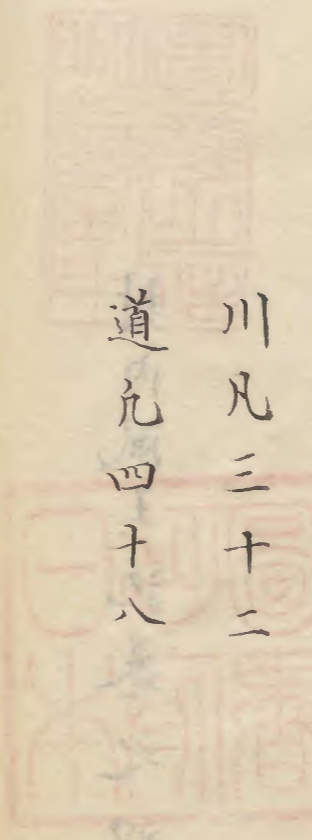 川凡三十二
道凡四十八